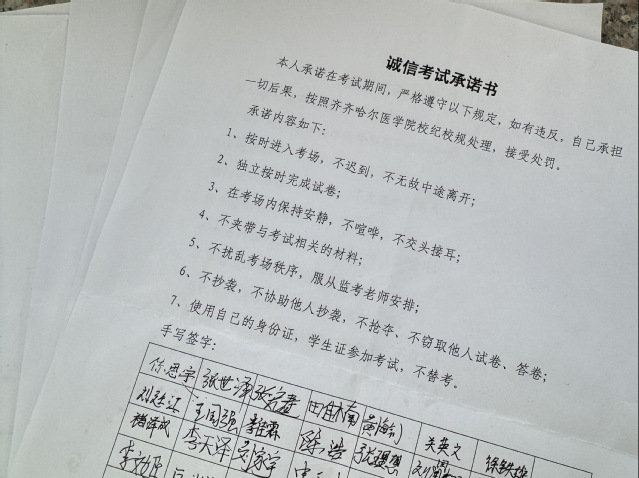 诚信考试承诺书
本人承诺在考试期间，严格遵守以下规定，如有违反，自己承担
一切后果，按照齐齐哈尔医学院校纪校规处理，接受处罚。
承诺内容如下：
1、按时进入考场，不迟到，不无故中途离开；
2、独立按时完成试卷；
3、在考场内保持安静，不喧哗，不交头接耳；
4、不夹带与考试相关的材料；
5、不扰乱考场秩序，服从监考老师安排；
6、不抄袭，不协助他人抄袭，不抢夺、不窃取他人试卷、答卷；
7、使用自己的身份证，学生证参加考试，不替考。
手写签字：
张世泽 关英文
李天泽 陈浩 张理想